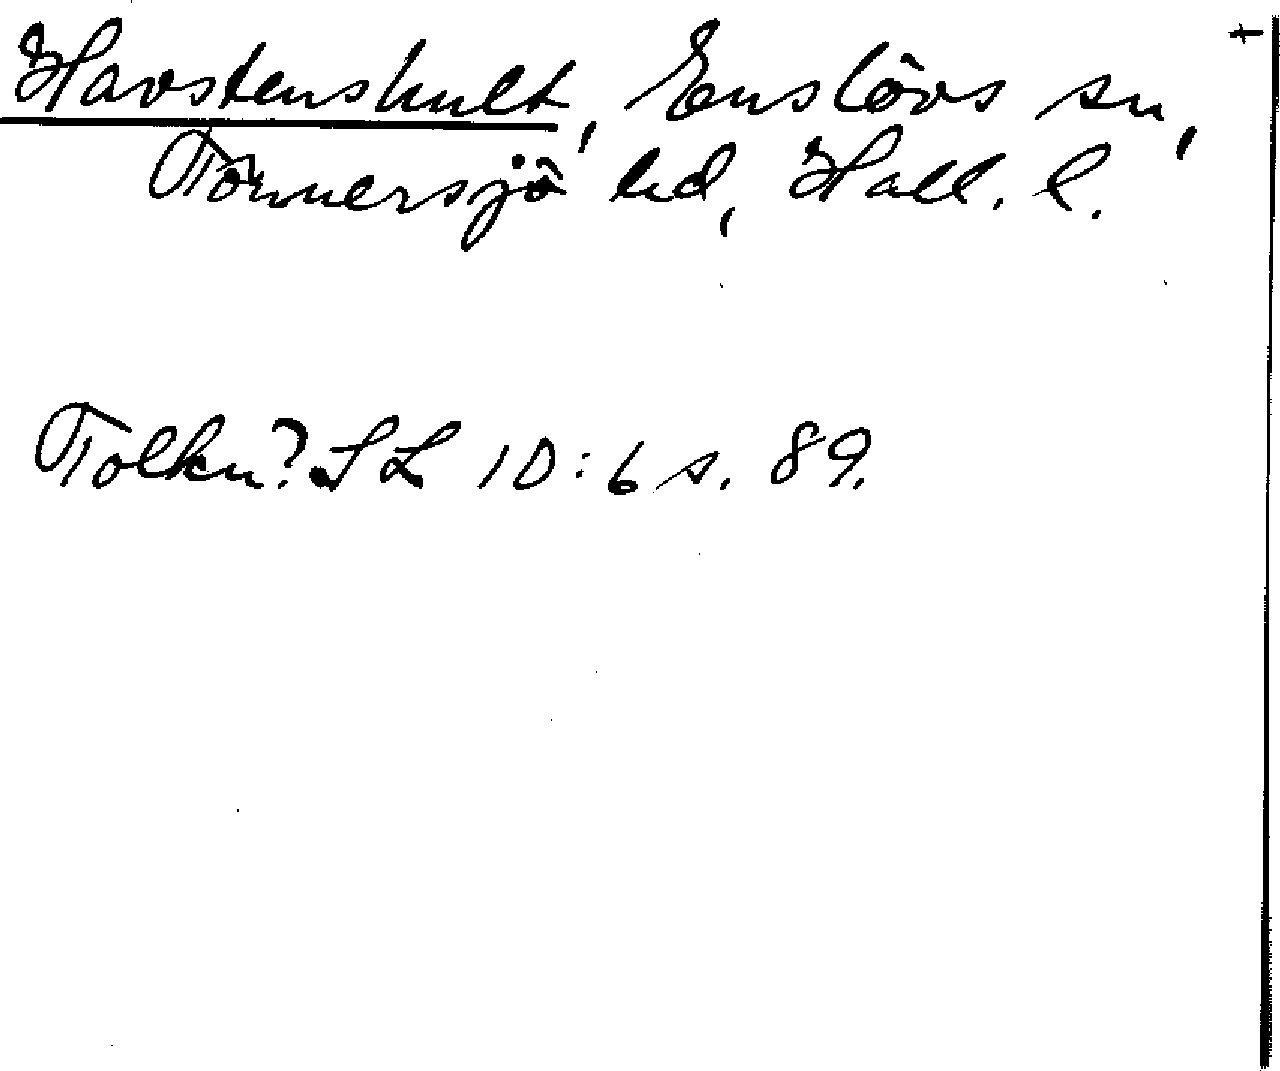 Havstenshult, Enslövs sn, t
Tönnersjö hd, Hall. l.
Tolkn? SL 10:6 s. 89.